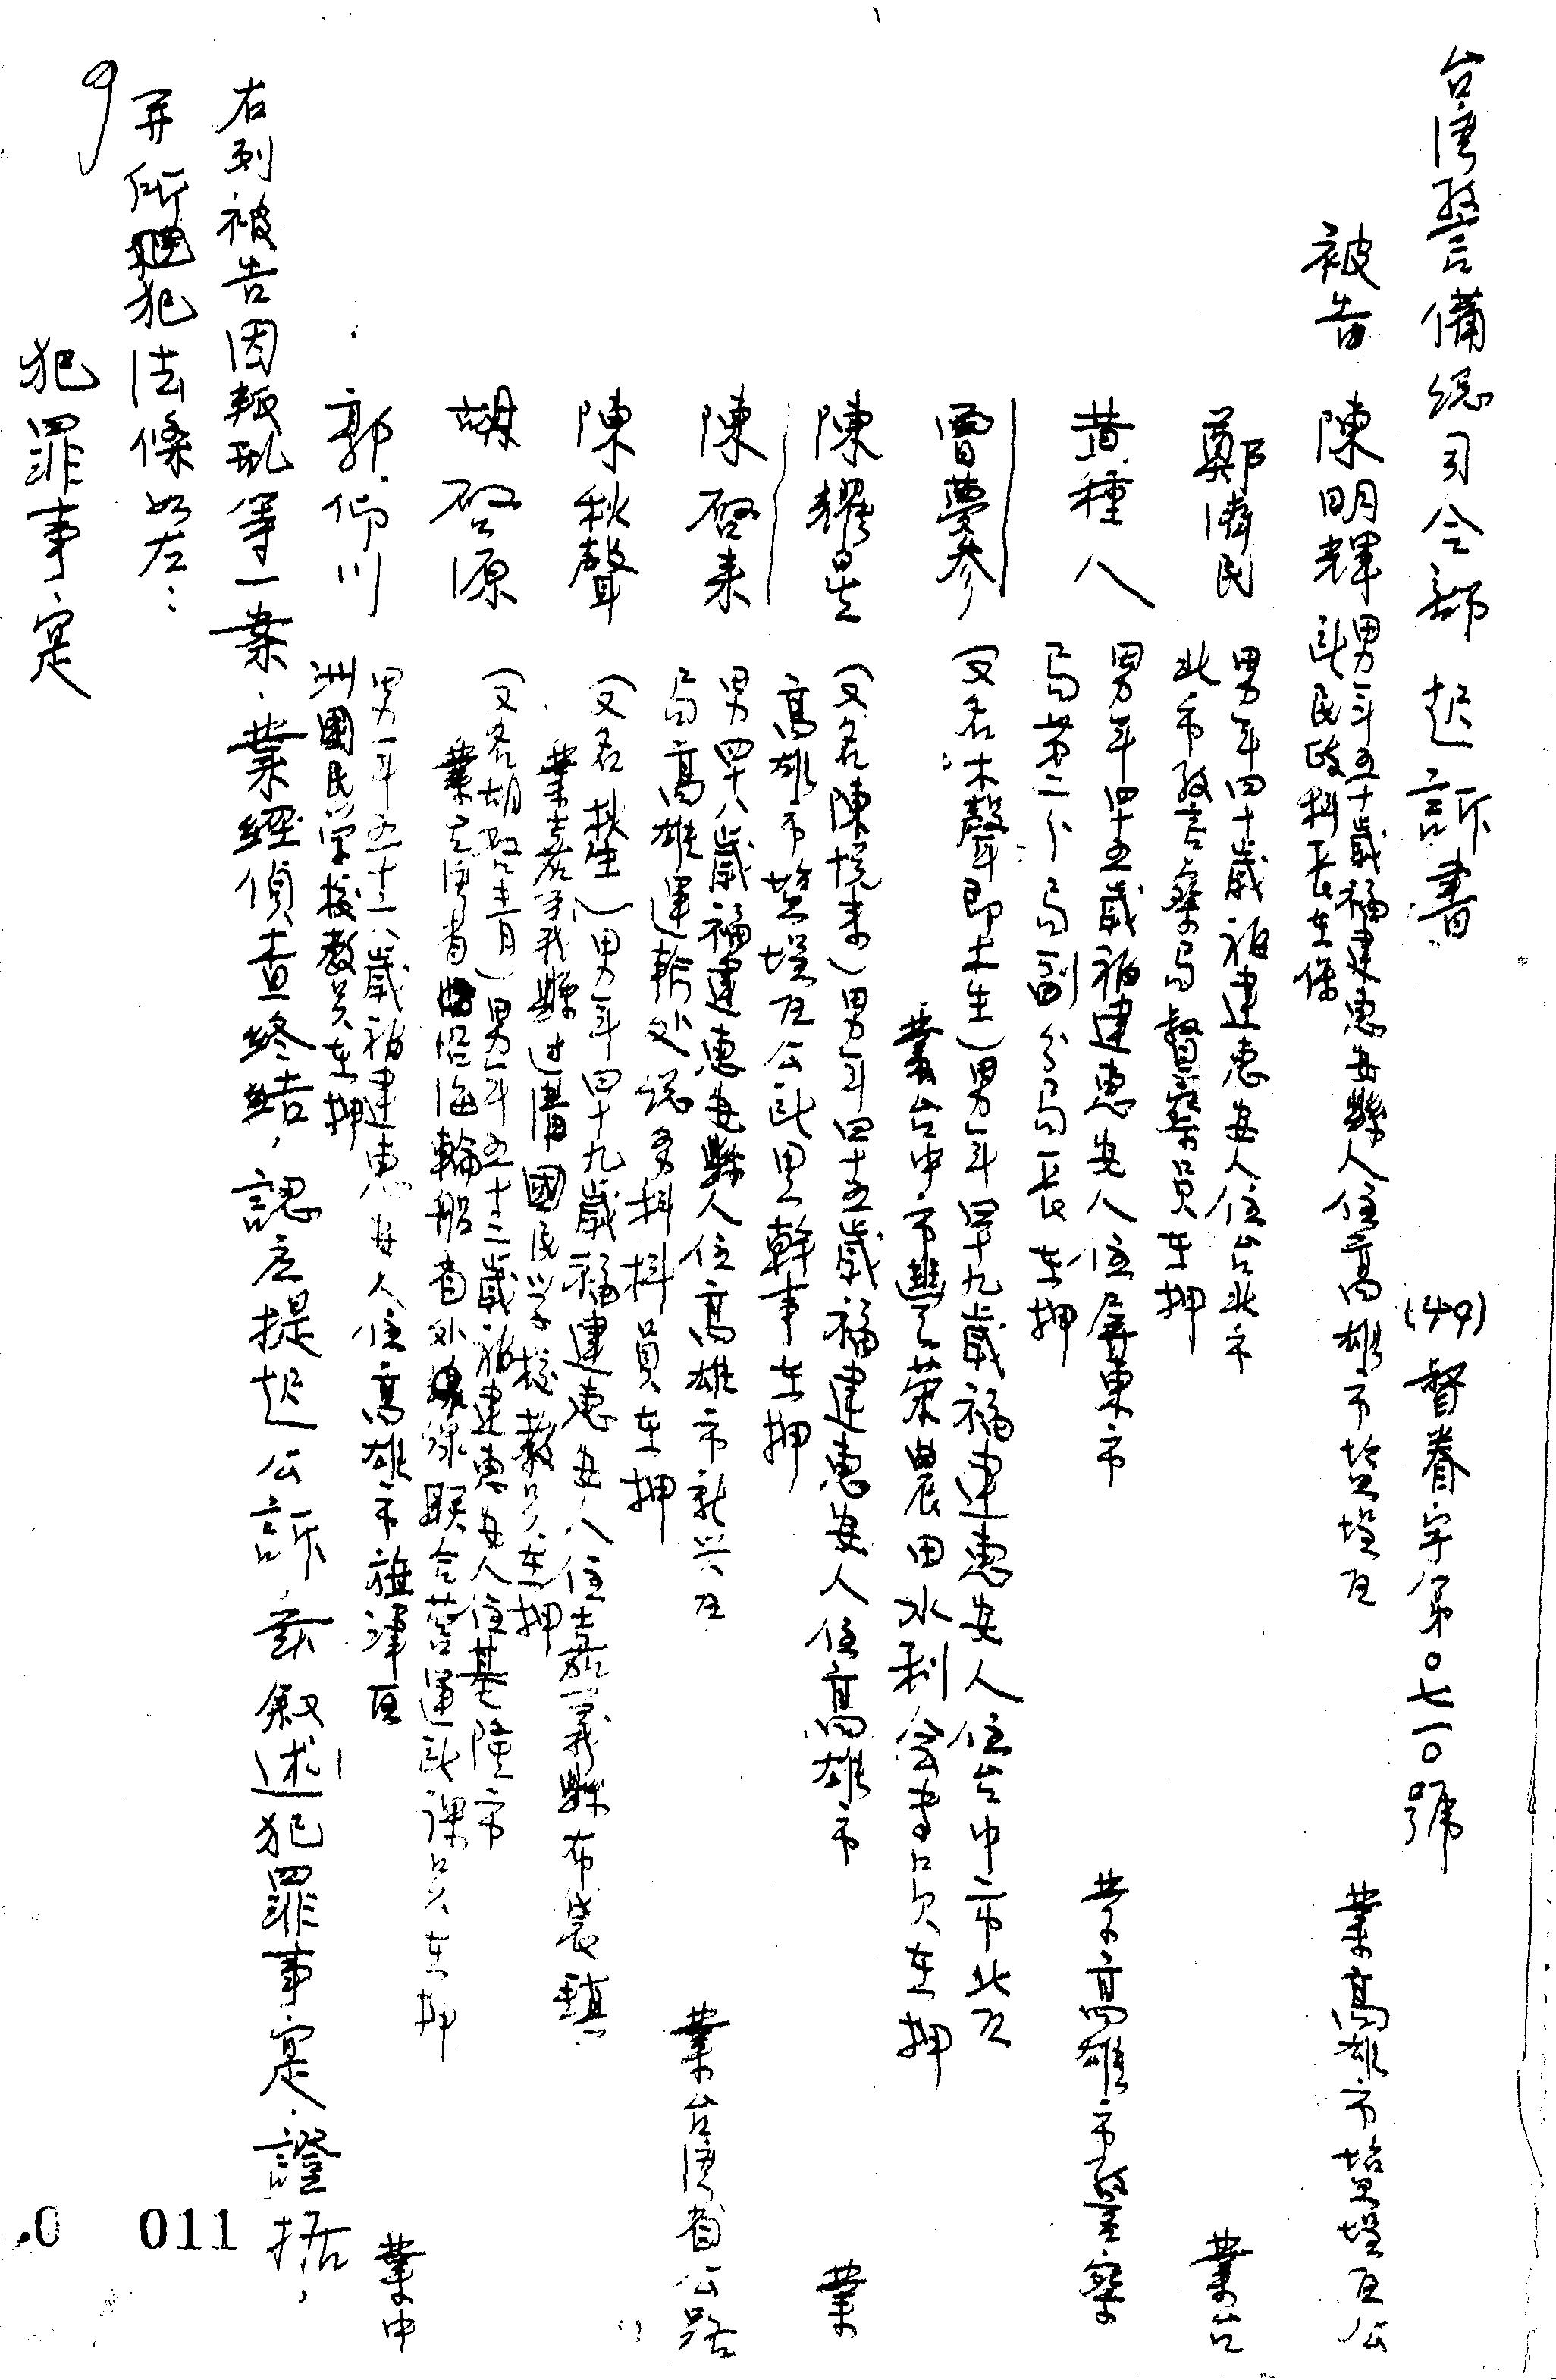 台湾警備総司令部 起訴書 (49)督眷字第〇七一〇號
被告 陳明輝 男年五十歲福建惠安縣人住高雄市塩埕区 業高雄市塩埕区公
所民政科長在保
鄭濟民 男年四十歲福建惠安人住台北市 業台
北市警察局督察員在押
黄種人 男年四十五歲福建惠安人住屏東市 業高雄市警察
局第二分局副分局長在押
曾夢參 (又名木聲即木生)男年四十九歲福建惠安人住台中市北区
業台中市豐榮農田水利会書記員在押
陳耀星 (又名陳境来)男年四十五歲福建惠安人住高雄市 業
高雄市塩埕区公所里幹事在押
陳啓来 男四十八歲福建惠安縣人住高雄市新兴区 業台湾省公路
局高雄運輸处総务科科員在押
陳秋聲 (又名秋生)男年四十九歲福建惠安人住嘉義縣布袋鎮
業嘉義縣过溝國民学校教员在押
胡啓源 (又名胡啓清)男年五十三歲福建惠安人住基隆市
業台湾省沿海輪船省外線联合营運所課员在押
郭仰川 男年五十六歲福建惠安人住高雄市旗津区 業中
洲國民学校教员在押
右列被告因叛乱等一案，業經偵查終結，認应提起公訴玆叙述犯罪事实，證据，
并所犯法條如左：
犯罪事实
011